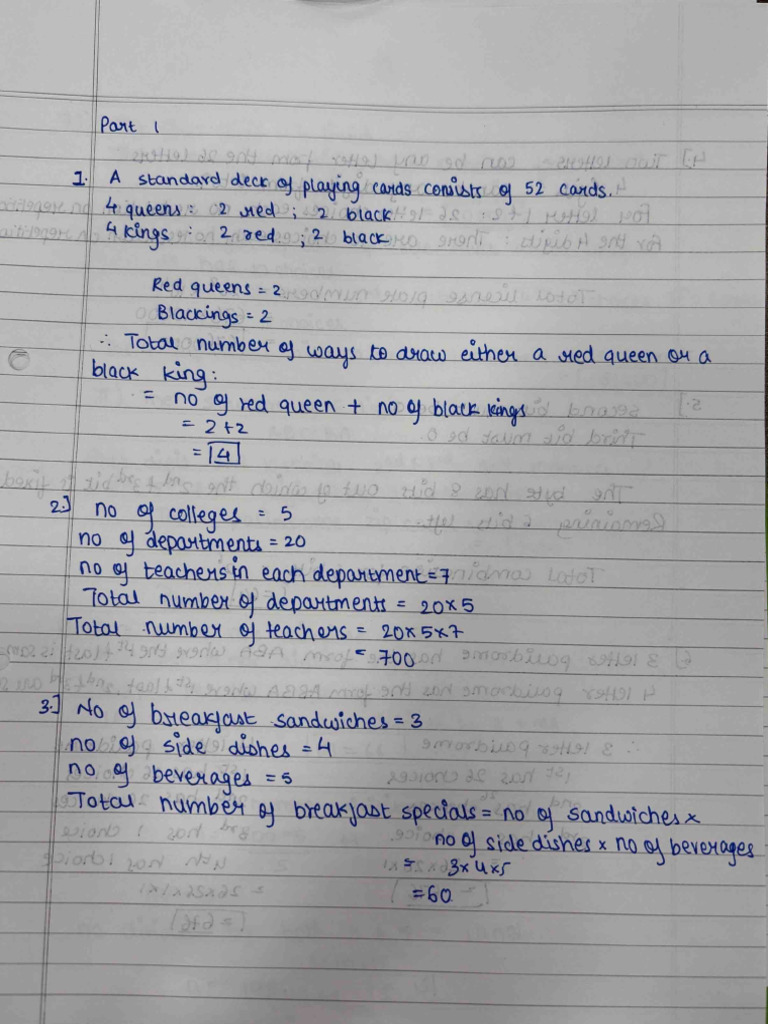 Part 1
1. A standard deck of playing cards consists of 52 cards.
4 queens : 2 red ; 2 black
4 kings : 2 red ; 2 black
Red queens = 2
Black kings = 2
∴ Total number of ways to draw either a red queen or a
black king :
= no of red queen + no of black kings
= 2+2
= 4
2.) no of colleges = 5
no of departments = 20
no of teachers in each department = 7
Total number of departments = 20×5
Total number of teachers = 20×5×7
= 700
3.) No of breakfast sandwiches = 3
no of side dishes = 4
no of beverages = 5
Total number of breakfast specials = no of sandwiches ×
no of side dishes × no of beverages
= 3×4×5
= 60